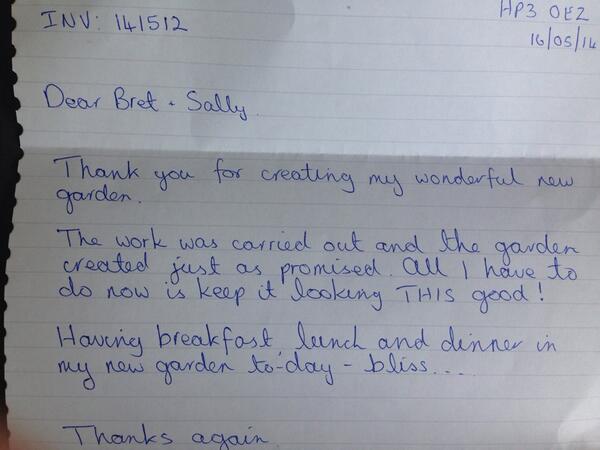 INV: 141512
HP3 0EZ
16/05/14
Dear Bret + Sally.
Thank you for creating my wonderful new
garden.
The work was carried out and the garden
created just as promised. All I have to
do now is keep it looking THIS good!
Having breakfast, lunch and dinner in
my new garden to-day - bliss....
Thanks again.